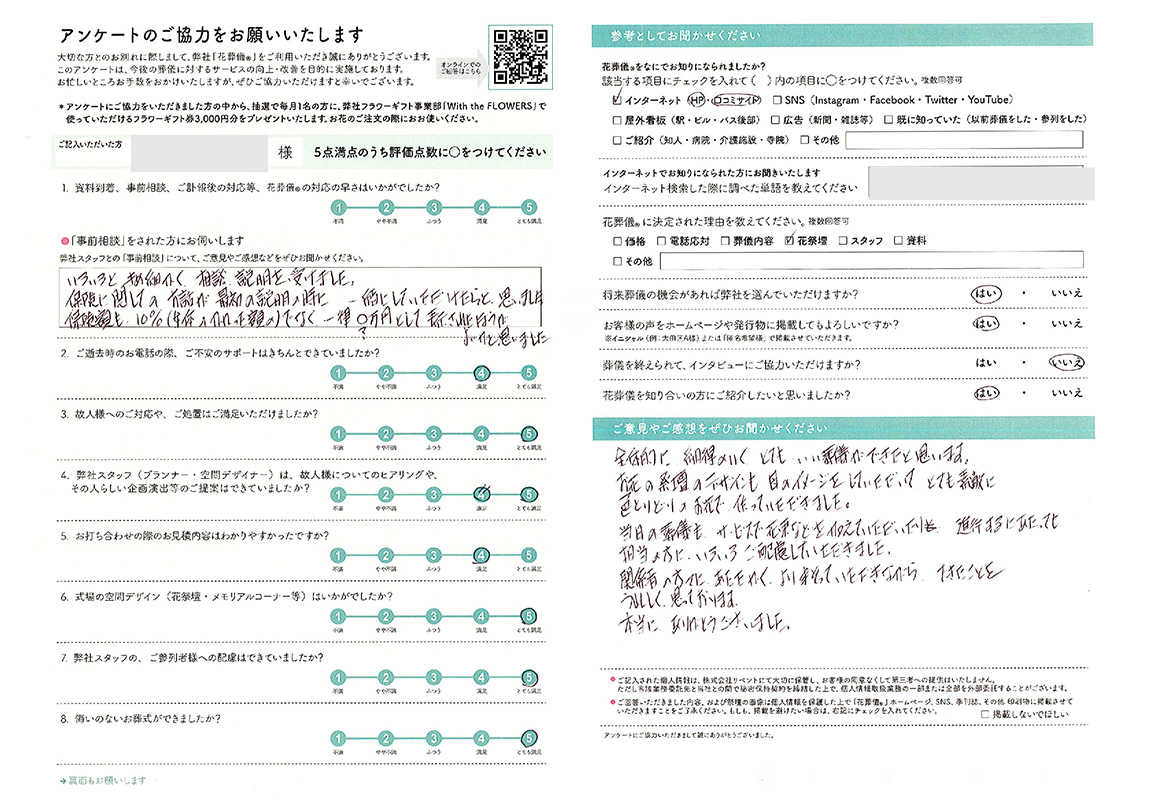 アンケートのご協力をお願いいたします
大切な方とのお別れに際しまして、弊社「花葬儀®」をご利用いただき誠にありがとうございます。
このアンケートは、今後の葬儀に対するサービスの向上・改善を目的に実施しております。
お忙しいところお手数をおかけいたしますが、ぜひご協力いただけますと幸いでございます。
オンラインでの
ご回答はこちら
*アンケートにご協力をいただきました方の中から、抽選で毎月1名の方に、弊社フラワーギフト事業部「With the FLOWERS」で
使っていただけるフラワーギフト券3,000円分をプレゼントいたします。お花のご注文の際にお使いください。
ご記入いただいた方
様
5点満点のうち評価点数に○をつけてください
1. 資料到着、事前相談、ご訃報後の対応等、花葬儀®の対応の早さはいかがでしたか？
1 2 3 4 5
不満 やや不満 ふつう 満足 とても満足
●「事前相談」をされた方にお伺いします
弊社スタッフとの「事前相談」について、ご意見やご感想などをぜひお聞かせください。
いろいろと きめ細かく 相談、説明を受けました。
保険に関しての お話が 最初の説明の時に 一緒にしていただけたらと、思いました
保険額も 10% でなく 一律 〇万円として 表示されたほうが
?
よいかと思いました
2. ご逝去時のお電話の際、ご不安のサポートはきちんとできていましたか？
1 2 3 4 5
不満 やや不満 ふつう 満足 とても満足
3. 故人様へのご対応や、ご処置はご満足いただけましたか？
1 2 3 4 5
不満 やや不満 ふつう 満足 とても満足
4. 弊社スタッフ（プランナー・空間デザイナー）は、故人様についてのヒアリングや、
その人らしい企画演出等のご提案はできていましたか？
1 2 3 4 5
不満 やや不満 ふつう 満足 とても満足
5. お打ち合わせの際のお見積内容はわかりやすかったですか？
1 2 3 4 5
不満 やや不満 ふつう 満足 とても満足
6. 式場の空間デザイン（花祭壇・メモリアルコーナー等）はいかがでしたか？
1 2 3 4 5
不満 やや不満 ふつう 満足 とても満足
7. 弊社スタッフの、ご参列者様への配慮はできていましたか？
1 2 3 4 5
不満 やや不満 ふつう 満足 とても満足
8. 悔いのないお葬式ができましたか？
1 2 3 4 5
不満 やや不満 ふつう 満足 とても満足
→裏面もお願いします
参考としてお聞かせください
花葬儀®をなにでお知りになられましたか？
該当する項目にチェックを入れて（ ）内の項目に○をつけてください。複数回答可
☑ インターネット（HP・口コミサイト） □ SNS（Instagram・Facebook・Twitter・YouTube）
□ 屋外看板（駅・ビル・バス後部） □ 広告（新聞・雑誌等） □ 既に知っていた（以前葬儀をした・参列をした）
□ ご紹介（知人・病院・介護施設・寺院） □ その他
インターネットでお知りになられた方にお聞きいたします
インターネット検索した際に調べた単語を教えてください
花葬儀®に決定された理由を教えてください。複数回答可
□ 価格 □ 電話応対 □ 葬儀内容 ☑ 花祭壇 □ スタッフ □ 資料
□ その他
将来葬儀の機会があれば弊社を選んでいただけますか？ はい ・ いいえ
お客様の声をホームページや発行物に掲載してもよろしいですか？ はい ・ いいえ
※イニシャル（例：大田区A様）または「匿名希望様」で掲載させていただきます。
葬儀を終えられて、インタビューにご協力いただけますか？ はい ・ いいえ
花葬儀を知り合いの方にご紹介したいと思いましたか？ はい ・ いいえ
ご意見やご感想をぜひお聞かせください
全体的に 納得のいく とても いい葬儀ができたと思います。
お花の祭壇のデザインも 母のイメージを していただいて とても素敵に
色とりどりの お花で 作っていただきました。
当日の葬儀も サービスで 花束などを 加えていただいたり、 進行するにあたっても
担当の方に いろいろ ご配慮していただきました。
関係者の方々に あたたかく より添っていただきながら できたことを
うれしく 思っております。
本当に ありがとうございました。
● ご記入された個人情報は、株式会社リベントにて大切に保管し、お客様の同意なくして第三者への提供はいたしません。
ただし当該業務委託先と当社との間で秘密保持契約を締結した上で、個人情報取扱業務の一部または全部を外部委託することがございます。
● ご回答いただきました内容、および祭壇の画像は個人情報を保護した上で「花葬儀®」ホームページ、SNS、季刊誌、その他 印刷物に掲載させて
いただきますことをご了承ください。もしも、掲載を避けたい場合は、右記にチェックを入れてください。
□ 掲載しないでほしい
アンケートにご協力いただきまして誠にありがとうございました。